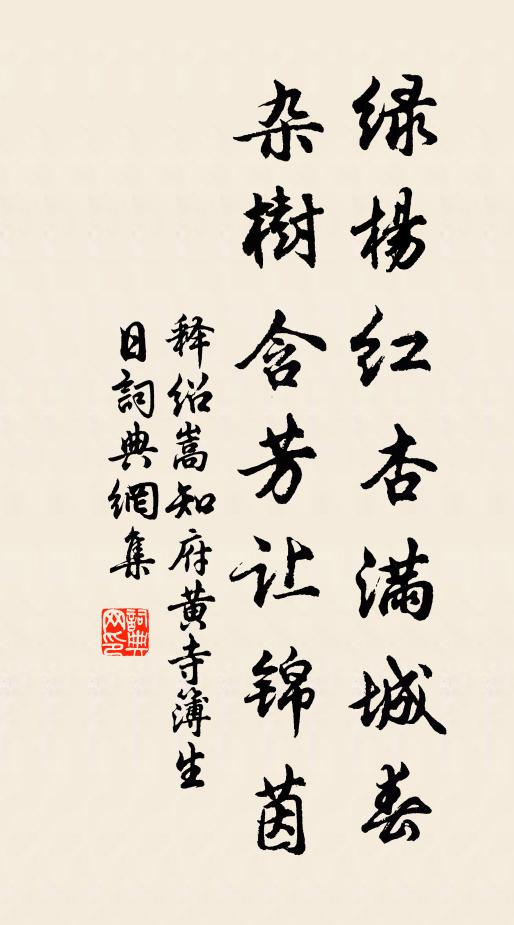 绿杨红杏满城春
杂樹含芳让锦茵
释绍嵩知府黄寺簿生
日詞典網集
詞典
网印